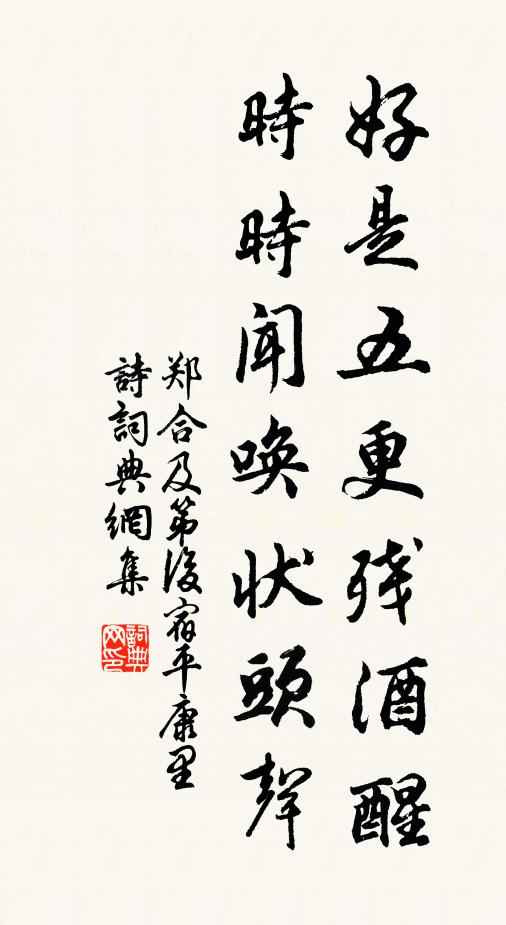 好是五更残酒醒
時時聞唤状頭聲
郑合及第後宿平康里
詩詞典網集
詞典网印